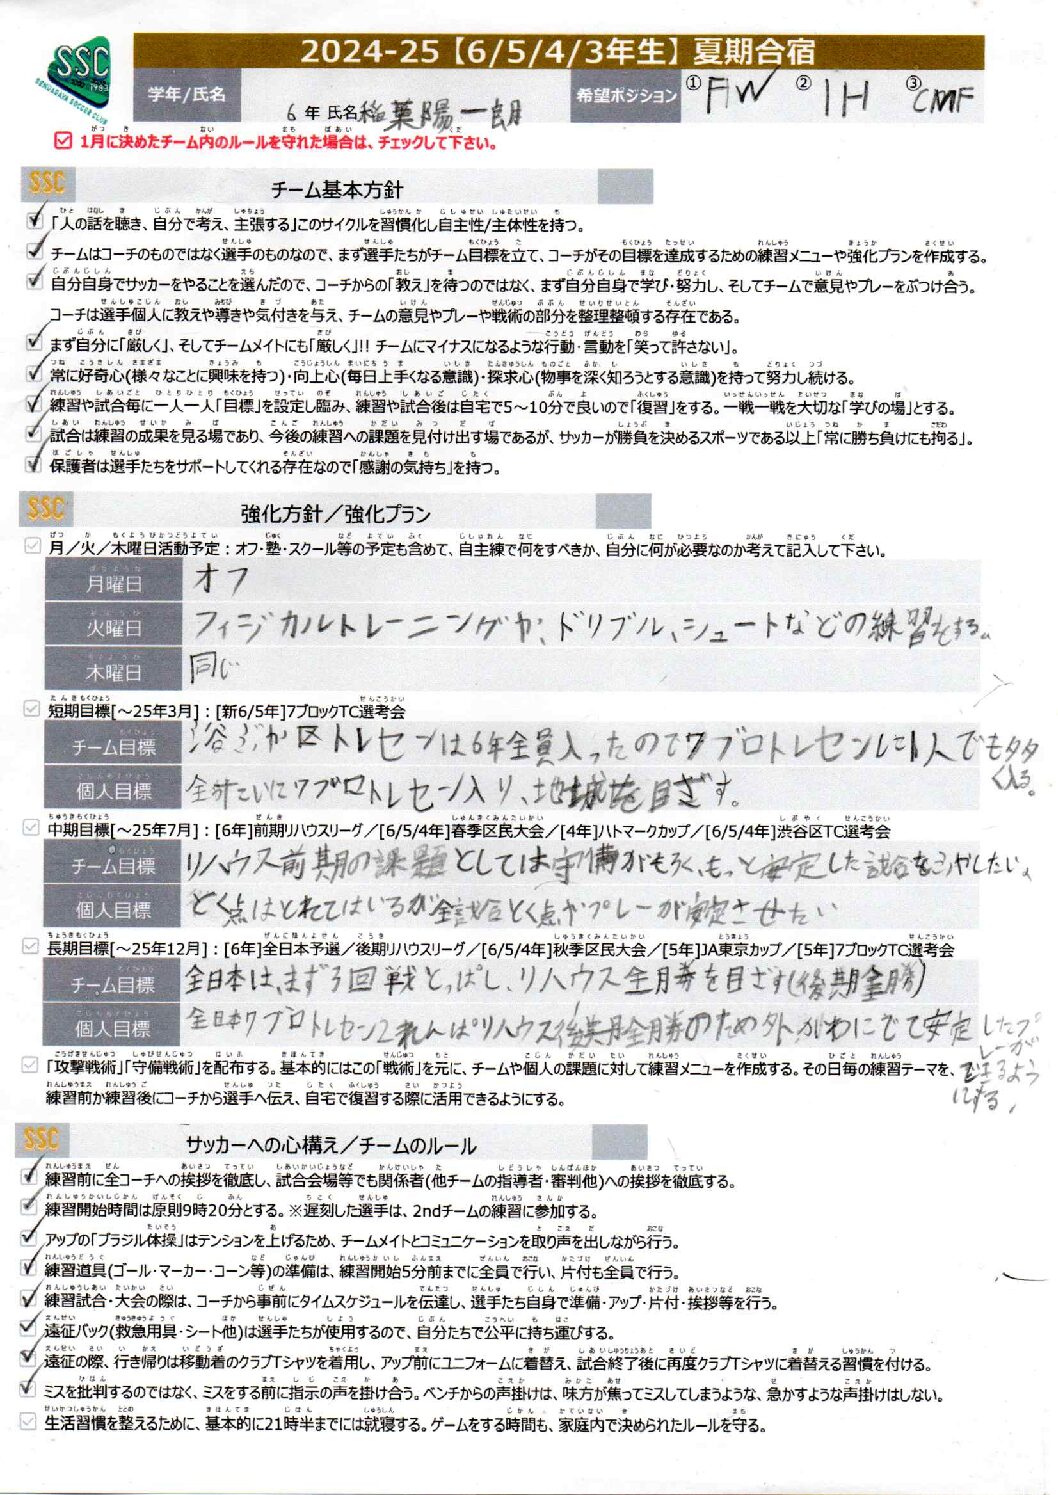 SSC
SENDAGAYA SOCCER CLUB
2024-25【6/5/4/3年生】夏期合宿
学年/氏名 6年 氏名 稲葉陽一朗 希望ポジション ①FW ②IH ③CMF
1月に決めたチーム内のルールを守れた場合は、チェックして下さい。
SSC チーム基本方針
「人の話を聴き、自分で考え、主張する」このサイクルを習慣化し自主性/主体性を持つ。
チームはコーチのものではなく選手のものなので、まず選手たちがチーム目標を立て、コーチがその目標を達成するための練習メニューや強化プランを作成する。
自分自身でサッカーをやることを選んだので、コーチからの「教え」を待つのではなく、まず自分自身で学び・努力し、そしてチームで意見やプレーをぶつけ合う。
コーチは選手個人に教えや導きや気付きを与え、チームの意見やプレーや戦術の部分を整理整頓する存在である。
まず自分に「厳しく」、そしてチームメイトにも「厳しく」!! チームにマイナスになるような行動・言動を「笑って許さない」。
常に好奇心(様々なことに興味を持つ)・向上心(毎日上手くなる意識)・探求心(物事を深く知ろうとする意識)を持って努力し続ける。
練習や試合毎に一人一人「目標」を設定し臨み、練習や試合後は自宅で5～10分で良いので「復習」をする。一戦一戦を大切な「学びの場」とする。
試合は練習の成果を見る場であり、今後の練習への課題を見付け出す場であるが、サッカーが勝負を決めるスポーツである以上「常に勝ち負けにも拘る」。
保護者は選手たちをサポートしてくれる存在なので「感謝の気持ち」を持つ。
SSC 強化方針／強化プラン
月／火／木曜日活動予定：オフ・塾・スクール等の予定も含めて、自主練で何をすべきか、自分に何が必要なのか考えて記入して下さい。
月曜日 オフ
火曜日 フィジカルトレーニングや、ドリブル、シュートなどの練習をする。
木曜日 同じ
短期目標[～25年3月]：[新6/5年]7ブロックTC選考会
チーム目標 渋ぶや区トレセンは6年全員入ったので7ブロトレセンに1人でも多く入る。
個人目標 全たいに7ブロトレセン入り、地域を目ざす。
中期目標[～25年7月]：[6年]前期リハウスリーグ／[6/5/4年]春季区民大会／[4年]ハトマークカップ／[6/5/4年]渋谷区TC選考会
チーム目標 リハウス前期の課題としては守備がもろく、もっと安定した試合をふやしたい。
個人目標 とく点はとれてはいるが全試合とく点やプレーが安定させたい
長期目標[～25年12月]：[6年]全日本予選／後期リハウスリーグ／[6/5/4年]秋季区民大会／[5年]JA東京カップ／[5年]7ブロックTC選考会
チーム目標 全日本は、まず3回戦とっぱし、リハウス全勝を目ざす(後期全勝)
個人目標 全日本7ブロトレセン2れんぱリハウス後期全勝のため外がわにでて安定したプレーができるようにする。
「攻撃戦術」「守備戦術」を配布する。基本的にはこの「戦術」を元に、チームや個人の課題に対して練習メニューを作成する。その日毎の練習テーマを、
練習前か練習後にコーチから選手へ伝え、自宅で復習する際に活用できるようにする。
SSC サッカーへの心構え／チームのルール
練習前に全コーチへの挨拶を徹底し、試合会場等でも関係者(他チームの指導者・審判他)への挨拶を徹底する。
練習開始時間は原則9時20分とする。※遅刻した選手は、2ndチームの練習に参加する。
アップの「ブラジル体操」はテンションを上げるため、チームメイトとコミュニケーションを取り声を出しながら行う。
練習道具(ゴール・マーカー・コーン等)の準備は、練習開始5分前までに全員で行い、片付も全員で行う。
練習試合・大会の際は、コーチから事前にタイムスケジュールを伝達し、選手たち自身で準備・アップ・片付・挨拶等を行う。
遠征バック(救急用具・シート他)は選手たちが使用するので、自分たちで公平に持ち運びする。
遠征の際、行き帰りは移動着のクラブTシャツを着用し、アップ前にユニフォームに着替え、試合終了後に再度クラブTシャツに着替える習慣を付ける。
ミスを批判するのではなく、ミスをする前に指示の声を掛け合う。ベンチからの声掛けは、味方が焦ってミスしてしまうような、急かすような声掛けはしない。
生活習慣を整えるために、基本的に21時半までには就寝する。ゲームをする時間も、家庭内で決められたルールを守る。